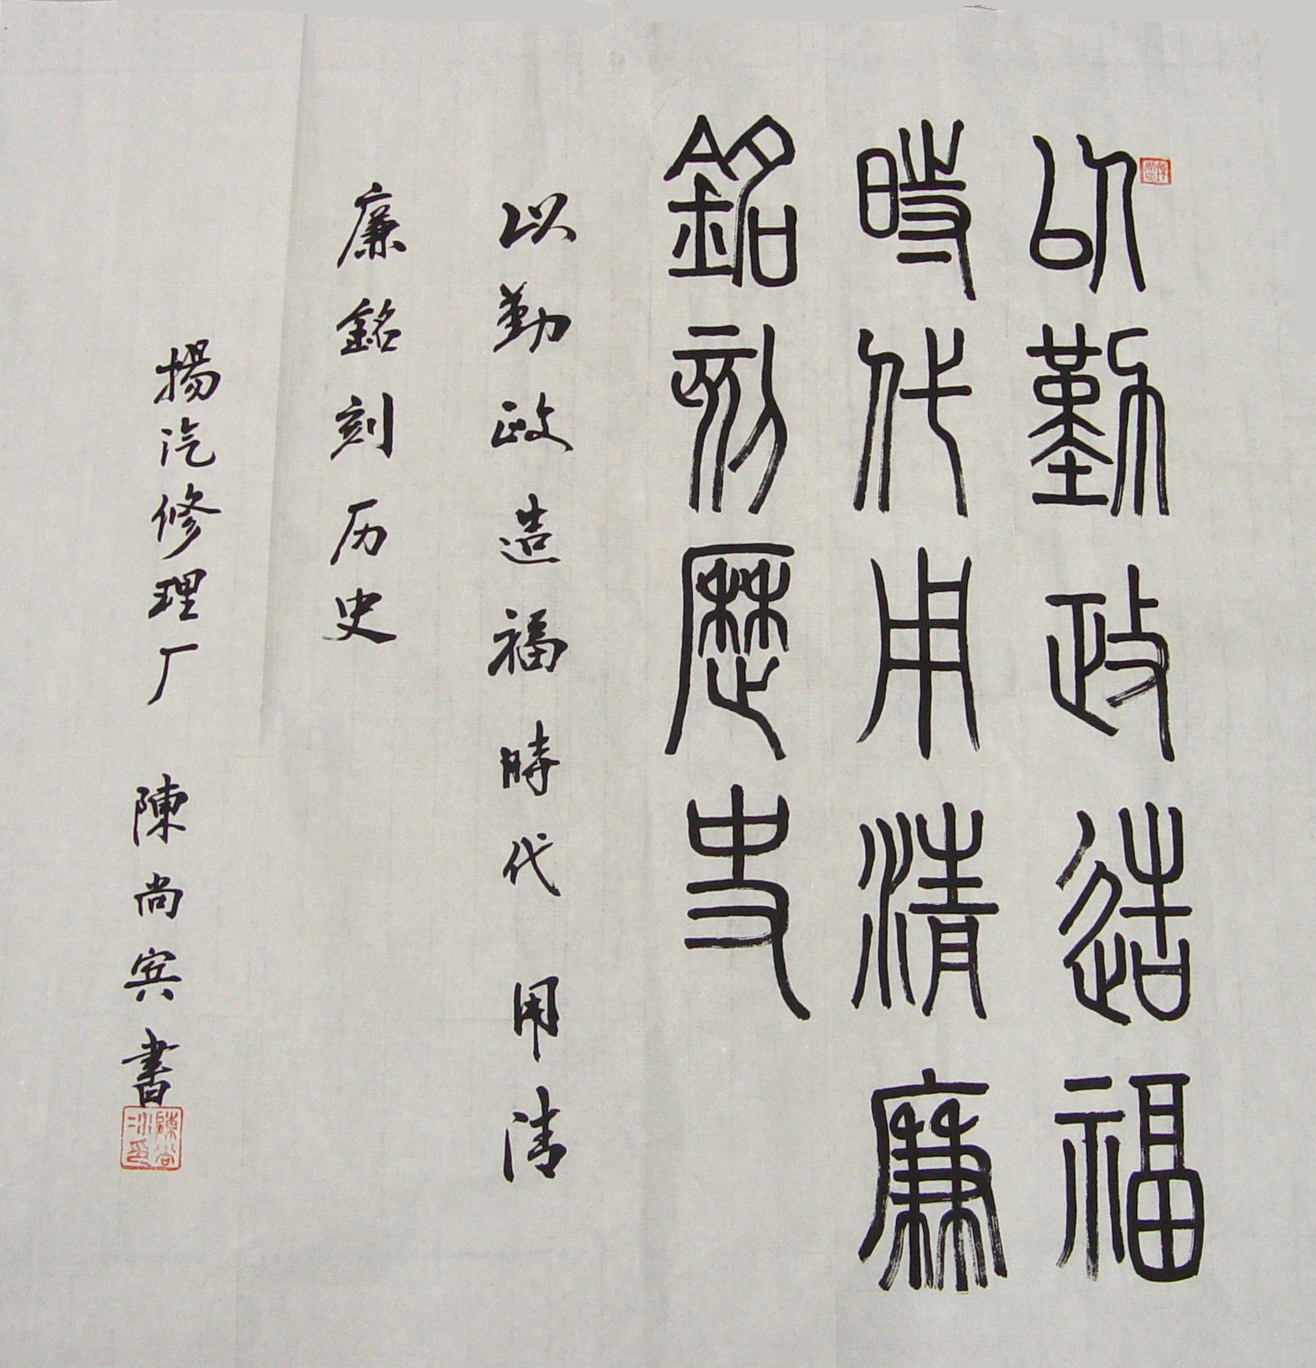 以勤政造福
時代用清廉
銘刻歷史
以勤政造福時代 用清
廉銘刻历史
揚汽修理厂 陳尚宾書